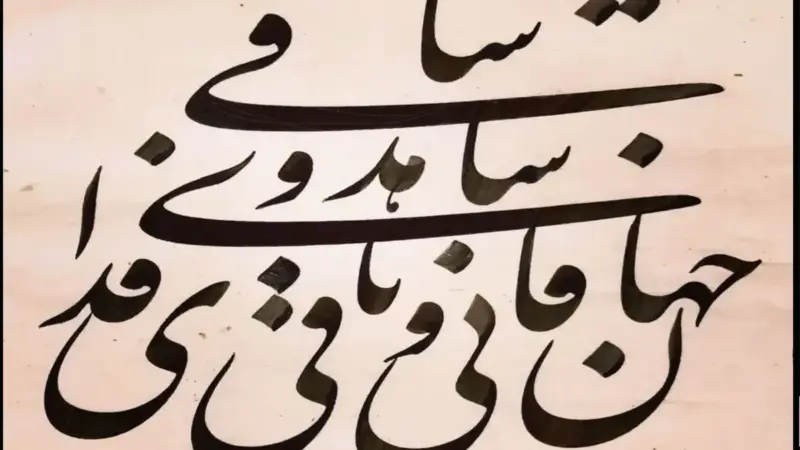 جهان فانی و باقی فدای
شاهد و
ساقی